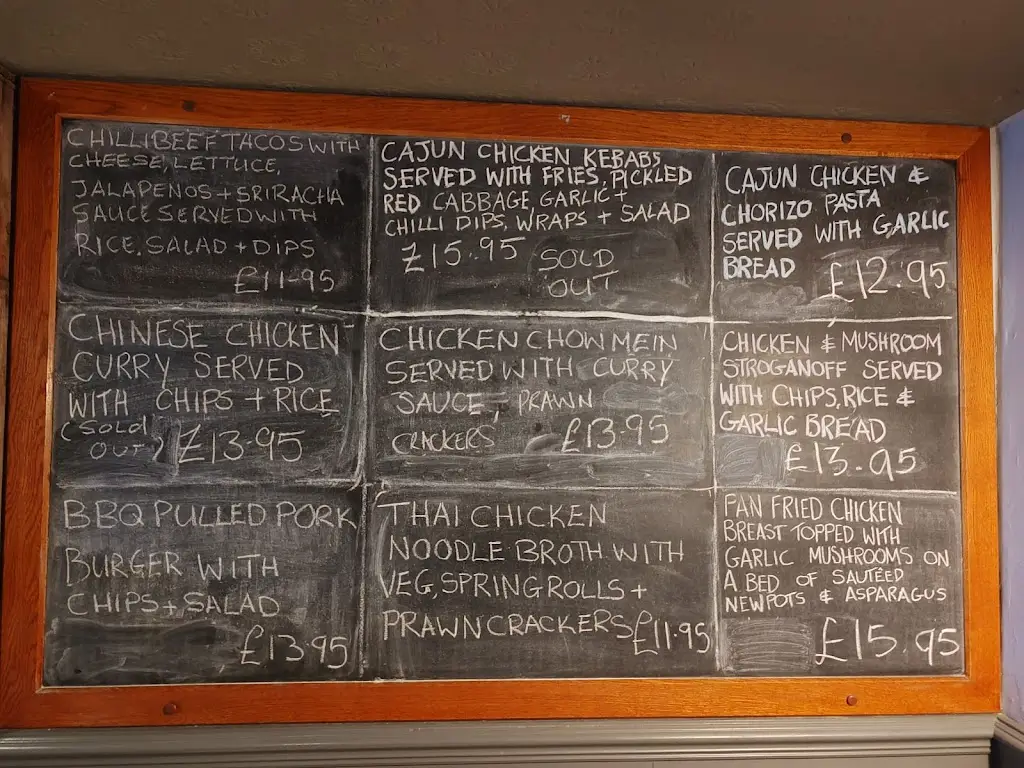 CHILLI BEEF TACOS WITH
CHEESE, LETTUCE,
JALAPENOS + SRIRACHA
SAUCE SERVED WITH
RICE, SALAD + DIPS
£11-95
CAJUN CHICKEN KEBABS
SERVED WITH FRIES, PICKLED
RED CABBAGE, GARLIC +
CHILLI DIPS, WRAPS + SALAD
£15.95 SOLD
OUT
CAJUN CHICKEN &
CHORIZO PASTA
SERVED WITH GARLIC
BREAD £12.95
CHINESE CHICKEN
CURRY SERVED
WITH CHIPS + RICE
(SOLD
OUT) £13.95
CHICKEN CHOW MEIN
SERVED WITH CURRY
SAUCE, PRAWN
CRACKERS £13.95
CHICKEN & MUSHROOM
STROGANOFF SERVED
WITH CHIPS, RICE &
GARLIC BREAD
£13.95
BBQ PULLED PORK
BURGER WITH
CHIPS + SALAD
£13.95
THAI CHICKEN
NOODLE BROTH WITH
VEG, SPRING ROLLS +
PRAWN CRACKERS £11.95
PAN FRIED CHICKEN
BREAST TOPPED WITH
GARLIC MUSHROOMS ON
A BED OF SAUTÉED
NEW POTS & ASPARAGUS
£15.95